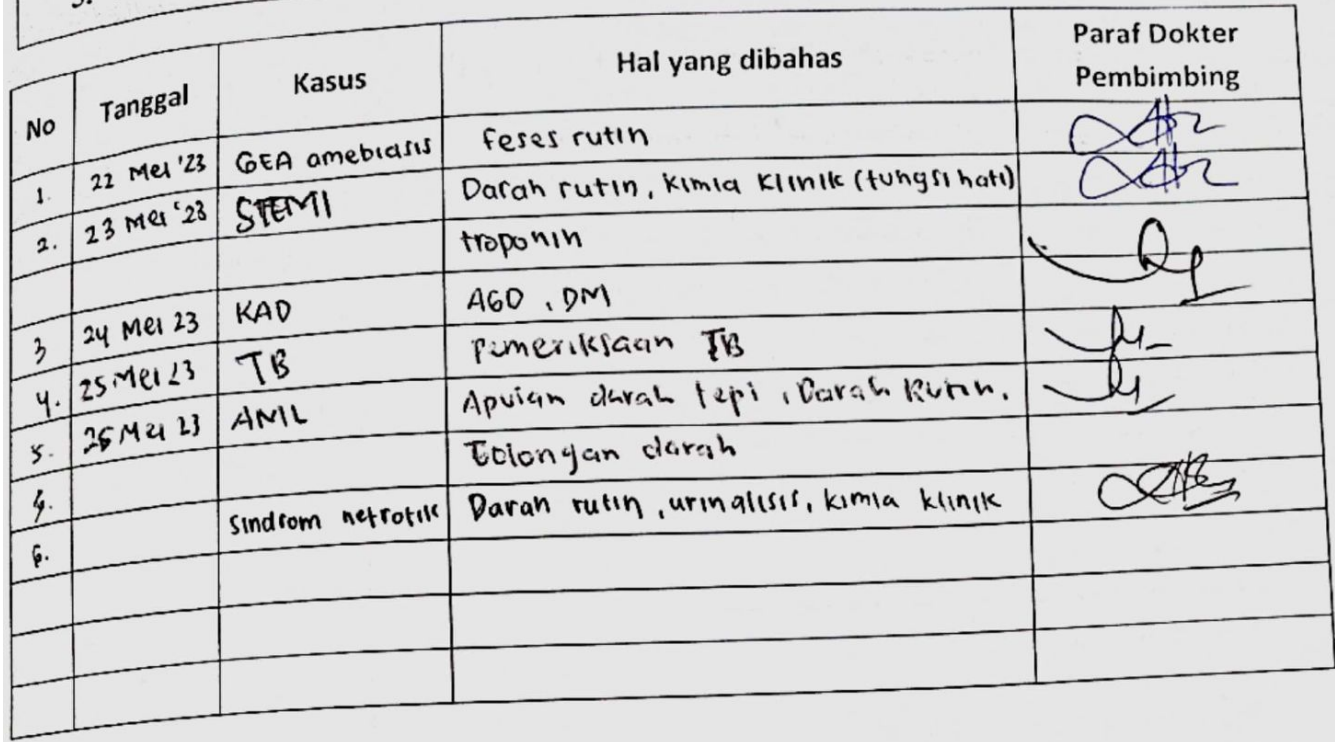 No Tanggal Kasus Hal yang dibahas Paraf Dokter Pembimbing
1. 22 Mei '23 GEA amebiasis feses rutin
2. 23 Mei '23 STEMI Darah rutin, kimia klinik (fungsi hati)
troponin
3 24 Mei 23 KAD AGD, DM
4. 25 Mei 23 TB Pemeriksaan TB
5. 26 Mei 23 AML Apuian darah tepi, Darah Rutin.
Golongan darah
6. Sindrom nefrotik Darah rutin, urinalisis, kimia klinik